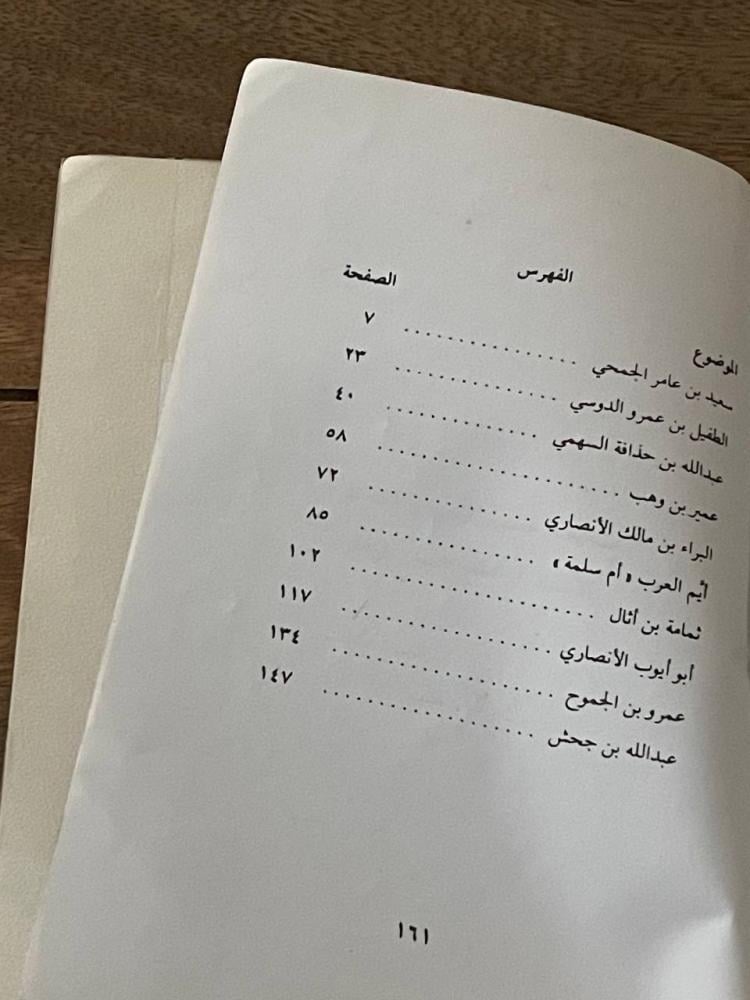 الفهرس
الموضوع الصفحة
سعيد بن عامر الجمحي ................ ٧
الطفيل بن عمرو الدوسي ................ ٢٣
عبدالله بن حذافة السهمي .............. ٤٠
عمير بن وهب ..................... ٥٨
البراء بن مالك الأنصاري .............. ٧٢
أيم العرب « أم سلمة » ............... ٨٥
ثمامة بن أثال ..................... ١٠٢
أبو أيوب الأنصاري .................. ١١٧
عمرو بن الجموح ................... ١٣٤
عبدالله بن جحش .................. ١٤٧
١٦١